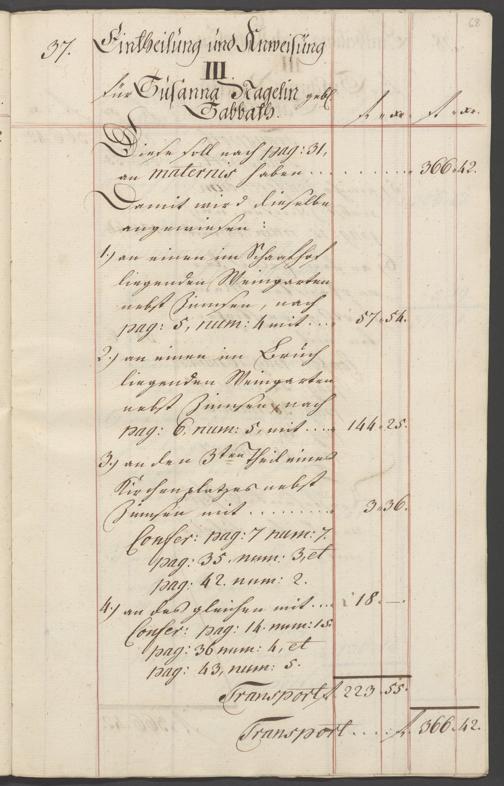 68
37. Eintheilung und Anweisung
III
für Susanna Nagelin geb.
Sabbath.
f. xr. f. xr.
Diese soll nach pag: 31,
an maternis haben . . . . . . . . . 366. 42.
Damit wird dieselbe
angewiesen:
1.) an einen im Schafhof
liegenden Weingarten
nebst Zinnsen, nach
pag: 5, num: 4 mit . . . 57. 54.
2.) an einen im Bruch
liegenden Weingarten
nebst Zinnsen, nach
pag: 6. num: 5, mit . . . . 144. 25.
3.) an den 3ten Theil eines
Kirchenplatzes nebst
Zinnsen mit . . . . . . . . 3. 36.
Confer: pag: 7 num: 7.
pag: 35. num: 3, et
pag: 42. num: 2.
4.) an des gleichen mit . . . 18. —
Confer: pag: 14. num: 15
pag: 36 num: 4, et
pag: 43, num: 5.
Transport f. 223. 55.
Transport . . . . f. 366. 42.